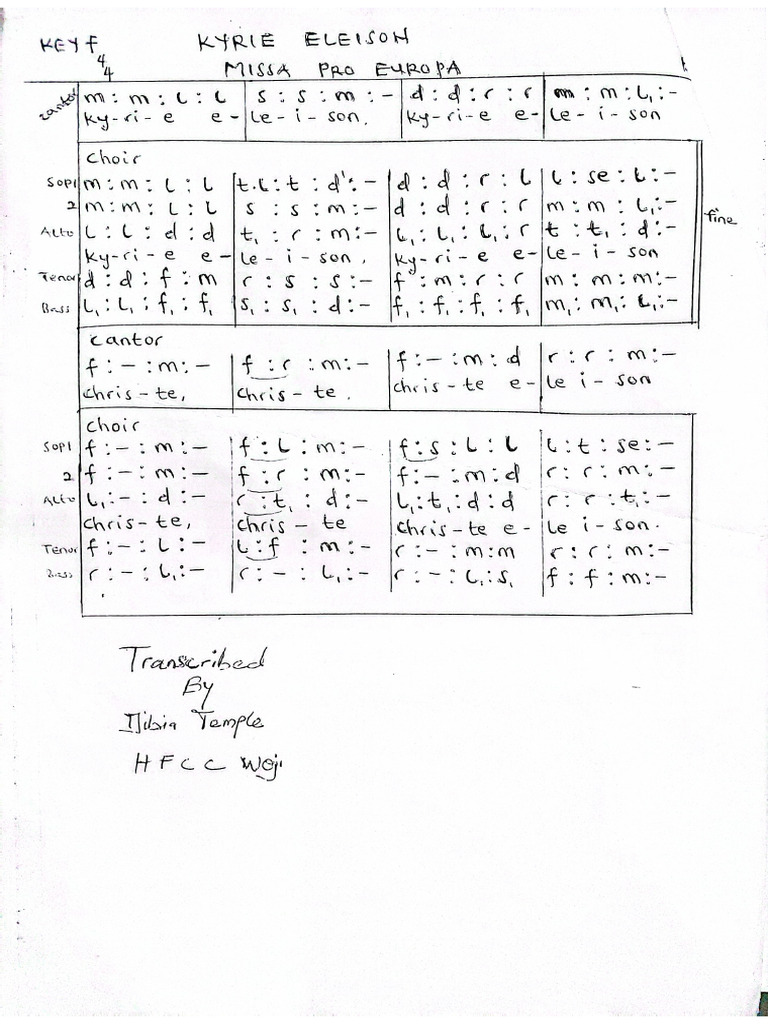 KEY f
KYRIE ELEISON
4
4
MISSA PRO EUROPA
cantor m : m : l : l | s : s : m : - | d : d : r : r | m : m : l₁ : -
ky-ri-e e- | le-i-son. | ky-ri-e e- | le-i-son
choir
Sop1 m : m : l : l | t.l : t : d' : - | d : d : r : l | l : se : l : -
2 m : m : l : l | s : s : m : - | d : d : r : r | m : m : l₁ : -
Alto l : l : d : d | t₁ : r : m : - | l₁ : l₁ : l₁ : r | t : t₁ : d : -
fine
ky-ri-e e- | le-i-son, | ky-ri-e e- | le-i-son
Tenor d : d : f : m | r : s : s : - | f : m : r : r | m : m : m : -
Bass l₁ : l₁ : f₁ : f₁ | s₁ : s₁ : d : - | f₁ : f₁ : f₁ : f₁ | m₁ : m₁ : l₁ : -
cantor
f : - : m : - | f : r : m : - | f : - : m : d | r : r : m : -
chris-te, | chris-te. | chris-te e- | le i-son
choir
Sop1 f : - : m : - | f : l : m : - | f : s : l : l | l : t : se : -
2 f : - : m : - | f : r : m : - | f : - : m : d | r : r : m : -
Alto l₁ : - : d : - | r : t₁ : d : - | l₁ : t₁ : d : d | r : r : t₁ : -
chris-te, | chris-te | chris-te e- | le i-son.
Tenor f : - : l : - | l : f : m : - | r : - : m : m | r : r : m : -
Bass r : - : l₁ : - | r : - : l₁ : - | r : - : l₁ : s₁ | f : f : m : -
Transcribed
By
Temple
HFCC Woji